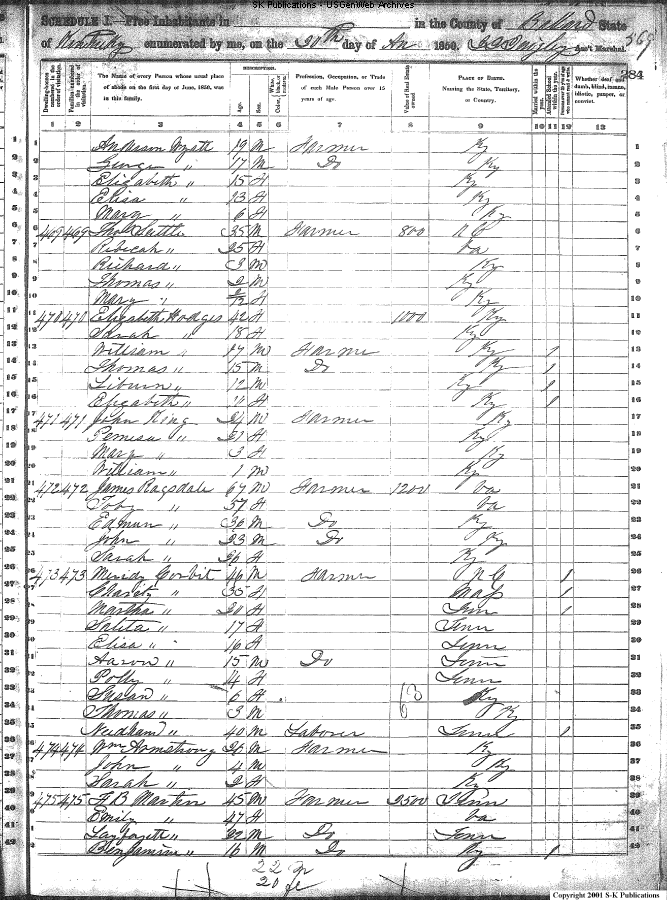 SK Publications - USGenWeb Archives
SCHEDULE I.—Free Inhabitants in in the County of Ballard State 569
of Kentucky enumerated by me, on the 20th day of 1850. Ass't Marshal.
284
Dwelling-houses numbered in the order of visitation. Families numbered in the order of visitation. The Name of every Person whose usual place of abode on the first day of June, 1850, was in this family. DESCRIPTION. Age. Sex. Color, White, black, or mulatto. Profession, Occupation, or Trade of each Male Person over 15 years of age. Value of Real Estate owned. PLACE OF BIRTH. Naming the State, Territory, or Country. Married within the year. Attended School within the year. Persons over 20 y'rs of age who cannot read & write. Whether deaf and dumb, blind, insane, idiotic, pauper, or convict.
1 2 3 4 5 6 7 8 9 10 11 12 13
1 Anderson Wyatt 19 M Farmer Ky 1
2 George " 17 M Do Ky 2
3 Elizabeth " 15 F Ky 3
4 Elisa " 13 F Ky 4
5 Mary " 6 F Ky 5
6 469 469 Thos 35 M Farmer 800 N C 6
7 Rebicah " 25 F Va 7
8 Richard " 3 M Ky 8
9 Thomas " 2 M Ky 9
10 Mary " 2/12 F Ky 10
11 470 470 Elizabeth Hodges 42 F 1000 Ky 11
12 Sarah " 18 F Ky 12
13 William " 17 M Farmer Ky 1 13
14 Thomas " 15 M Do Ky 1 14
15 Liburn " 12 M Ky 1 15
16 Elizabeth " 11 F Ky 1 16
17 471 471 John King 24 M Farmer Ky 17
18 Pemesa " 21 F Ky 18
19 Mary " 3 F Ky 19
20 William " 1 M Ky 20
21 472 472 James Ragsdale 67 M Farmer 1200 Va 21
22 Toby " 57 F Va 22
23 Edmun " 36 M Do Ky 23
24 John " 23 M Do Ky 24
25 Sarah " 26 F Ky 25
26 473 473 Corbit 46 M Farmer N C 1 26
27 Charity " 35 F 1 27
28 Martha " 20 F Tenn 1 28
29 Salita " 17 F Tenn 29
30 Elisa " 16 F Tenn 30
31 Aaron " 15 M Do Tenn 31
32 Polly " 4 F Tenn 32
33 Susan " 6 F 13 Ky 33
34 Thomas " 3 M 8 Ky 34
35 Needham " 40 M Laborer Tenn 1 35
36 474 474 Wm Armstrong 26 M Farmer Ky 36
37 John " 4 M Ky 37
38 Sarah " 2 F Ky 38
39 475 475 F B Martin 45 M Farmer 2500 Tenn 39
40 Emily " 47 F Va 40
41 Layfayeth " 22 M Do Tenn 41
42 Benjamine " 16 M Do Ky 1 42
22 m
20 fe
Copyright 2001 S-K Publications